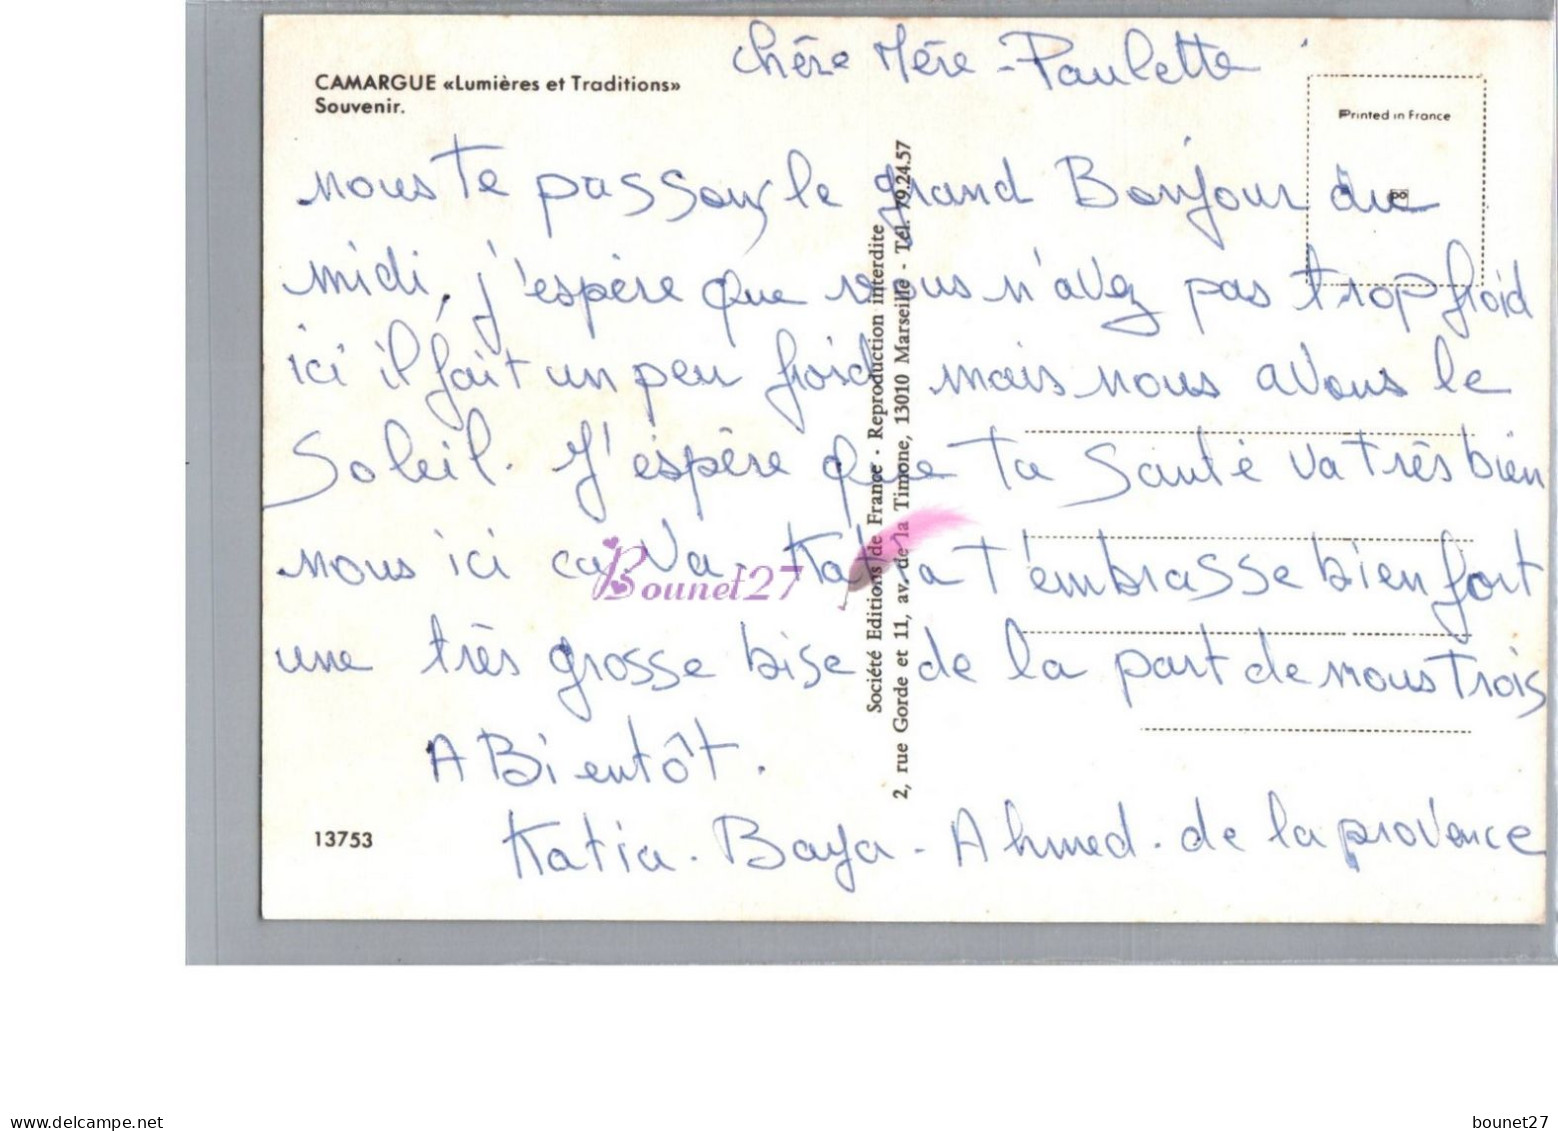 CAMARGUE «Lumières et Traditions»
Souvenir.
Printed in France
chère Mère - Paulette
nous te passons le grand Bonjour du
midi, j'espère que vous n'avez pas trop froid
ici il fait un peu froid mais nous avons le
Soleil. J'espère que ta Santé va très bien
nous ici ca va. Katia t'embrasse bien fort
une très grosse bise de la part de nous trois
A Bientôt.
Katia - Baya - Ahmed - de la provence
13753
Société Editions de France - Reproduction interdite
2, rue Gorde et 11, av. de la Timone, 13010 Marseille - Tél. 79.24.57
Bounet27
delcampe.net
bounet27